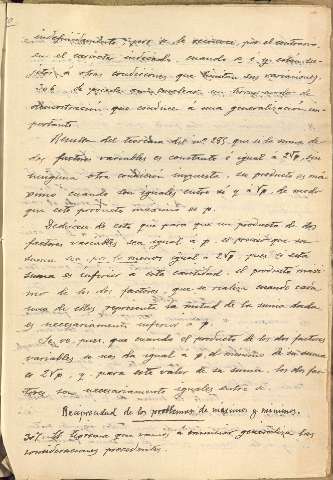 indefinidamente; pero no lo
en el carácter
á otras condiciones que
306. un
demostración que conduce á una generalización importante.
Resulta del teorema del nº 255, que si la suma de
dos factores variables es constante é igual á 2√p, sin
ninguna otra condición impuesta, su producto es má-
ximo cuando son iguales entre sí y á √p, de modo
que este producto máximo es p.
Dedúcese de esto que para que un producto de dos
factores variables sea igual á p es preciso que su
suma sea por lo menos igual á 2√p; pues si esta
suma es inferior á esta cantidad, el producto máxi-
mo de los dos factores, que se realiza cuando cada
uno de ellos representa la mitad de la suma dada
es necesariamente inferior á p.
Se ve, pues, que cuando el producto de los dos factores
variables se nos da igual á p, el mínimo de su suma
es 2√p, y para este valor de su suma, los dos fac-
tores son necesariamente iguales entre sí.
Reciprocidad de los problemas de máximos y mínimos.
307. El teorema que vamos á enunciar generaliza las
consideraciones precedentes.